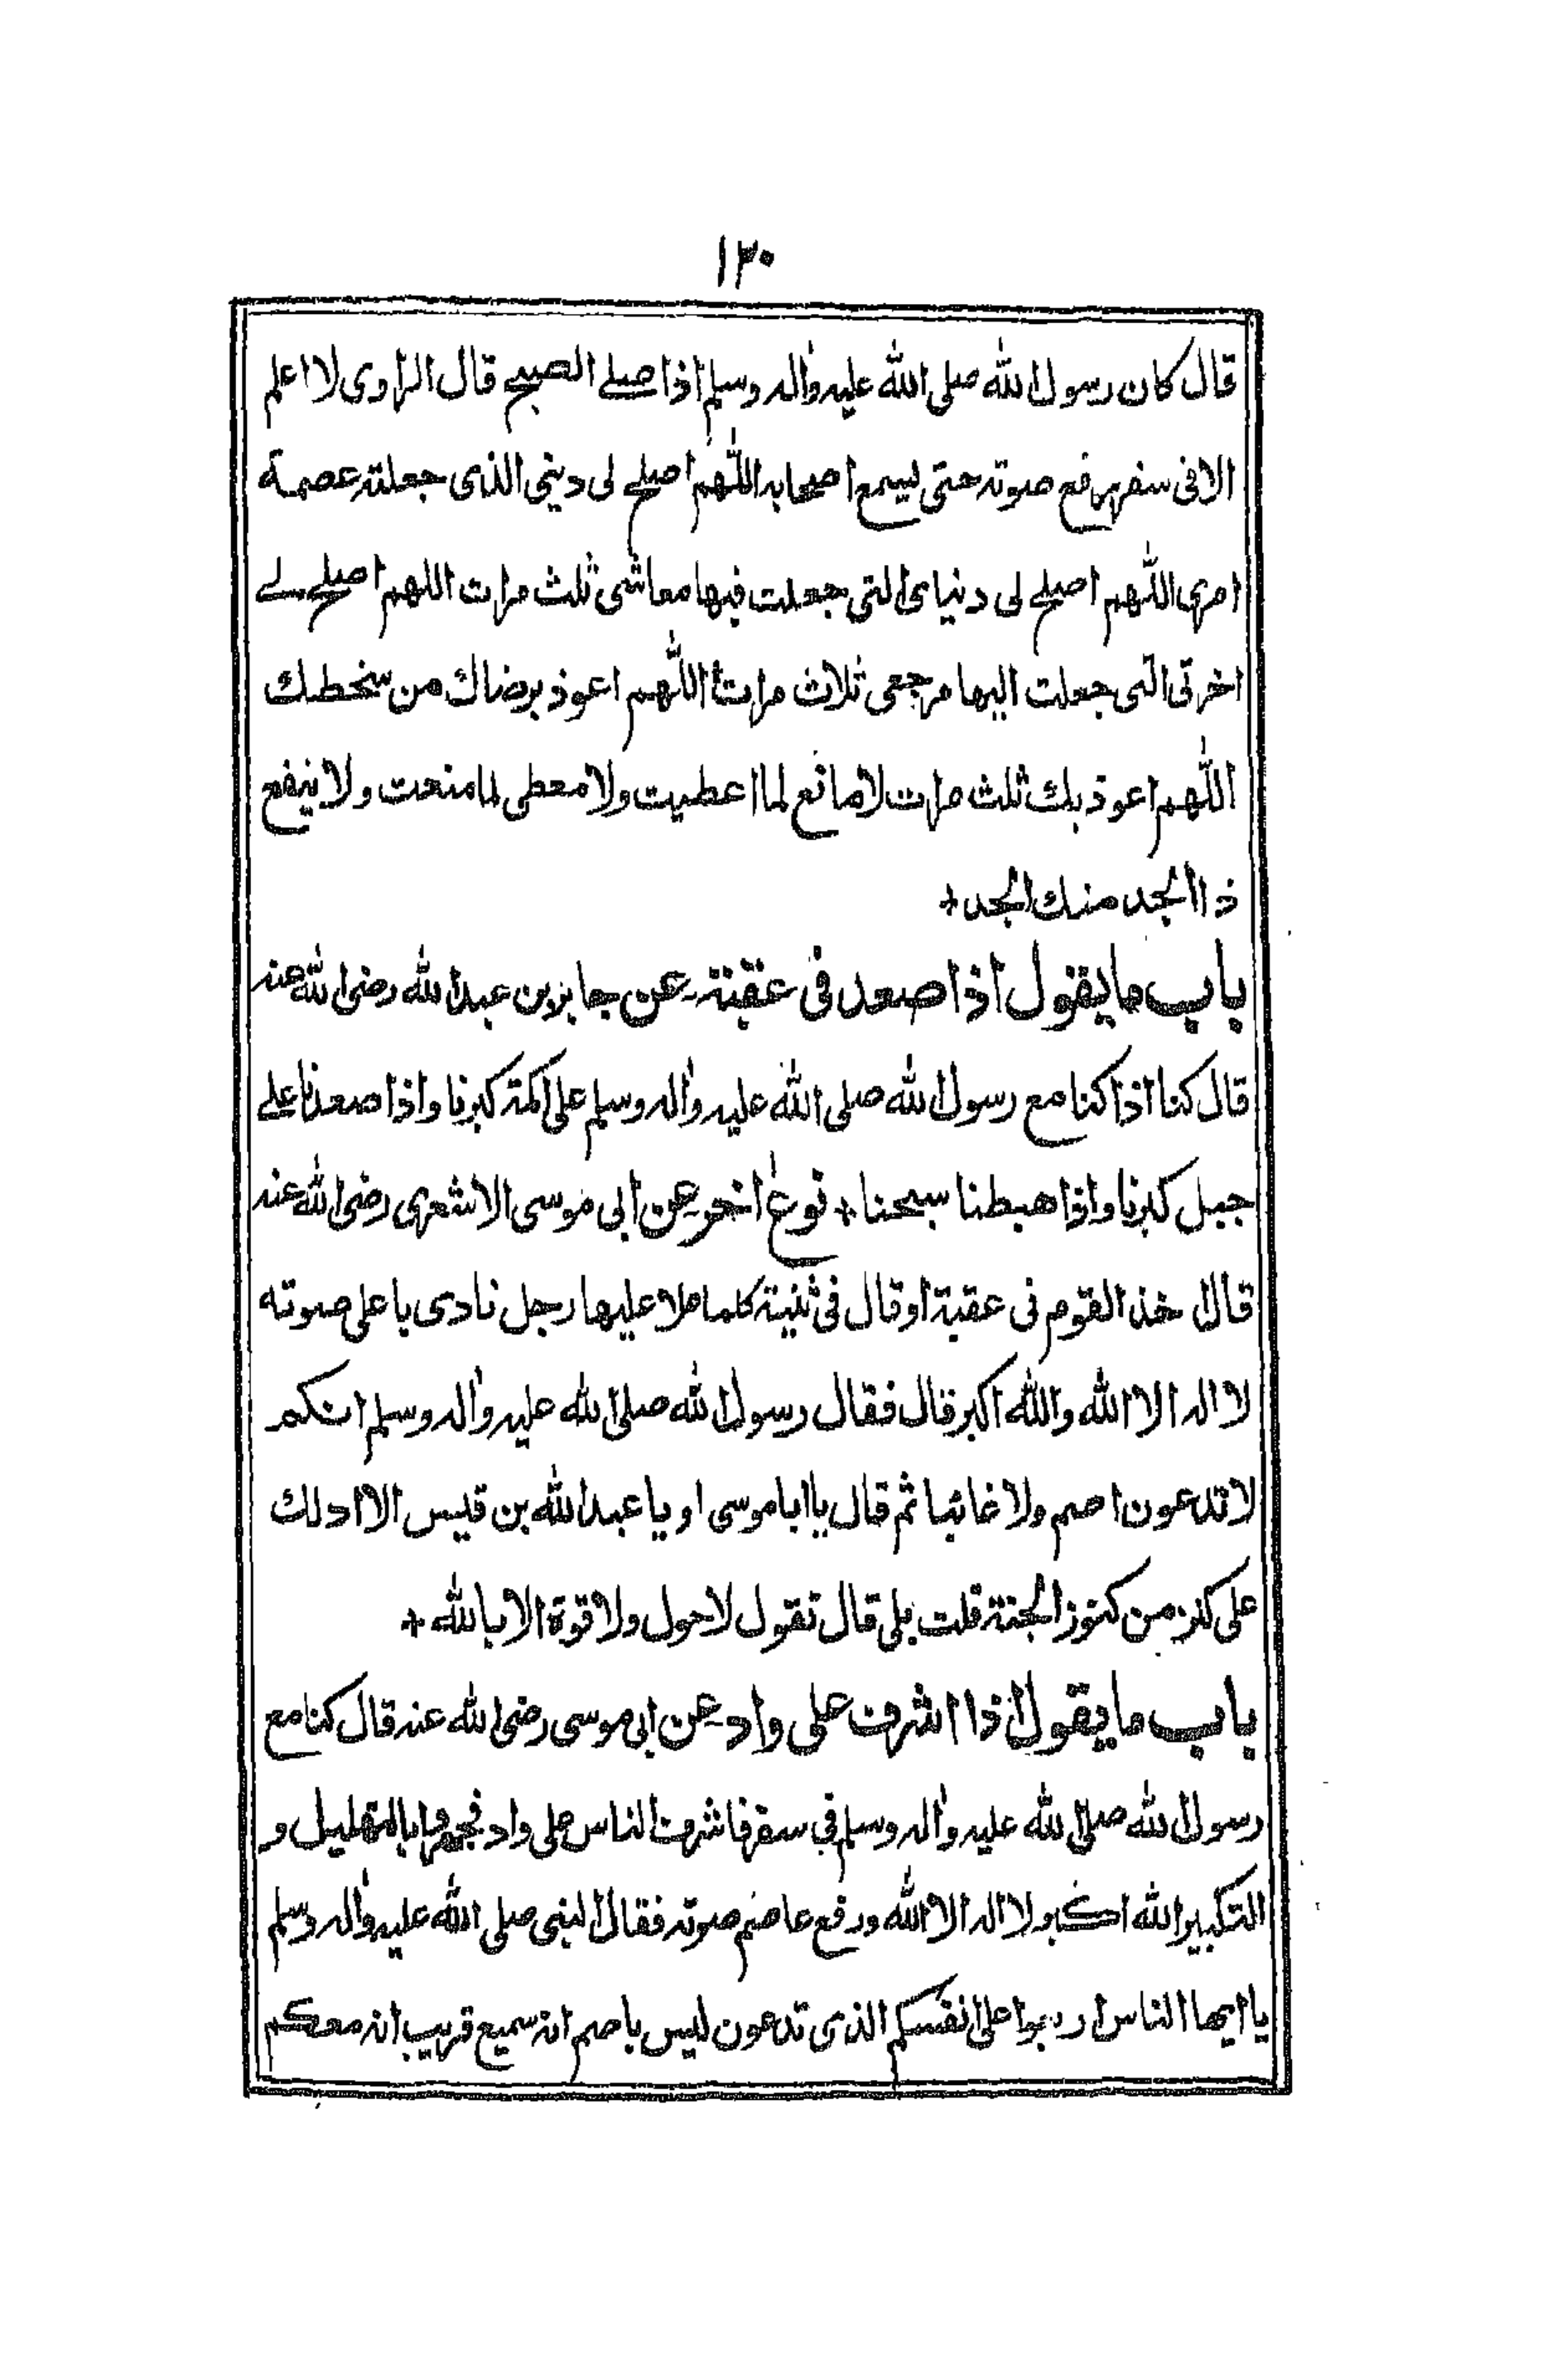 ١٣٠
قال كان رسول الله صلى الله عليه واٰله وسلم اذا صلے الصبح قال الراوى لا اعلم
الا فى سفر رفع صوته حتى ليسمع اصحابه اللّٰهم اصلح لى دينى الذى جعلته عصمة
امرى اللّٰهم اصلح لى دنياى التى جعلت فيها معاشى ثلث مرات اللهم اصلح لے
اخرتى التى جعلت اليها مرجعى ثلاث مرات اللّٰهم اعوذ برضاك من سخطك
اللّٰهم اعوذ بك ثلث مرات لا مانع لما اعطيت ولا معطى لما منعت ولا ينفع
ذا الجد منك الجد +
باب ما يقول اذا صعد فى عقبة عن جابر بن عبد الله رضى الله عنه
قال كنا اذا كنا مع رسول الله صلى الله عليه واٰله وسلم على اكمة كبرنا واذا صعدنا علے
جبل كبرنا واذا هبطنا سبحنا + نوع اٰخر عن ابى موسى الاشعرى رضى الله عنه
قال اخذ القوم فى عقبة او قال فى ثنية كلما علا عليها رجل نادى باعلى صوته
لا اله الا الله والله اكبر قال فقال رسول الله صلى الله عليه واٰله وسلم انكم
لا تدعون اصم ولا غائبا ثم قال يا ابا موسى او يا عبد الله بن قيس الا ادلك
على كنز من كنوز الجنة قلت بلى قال تقول لا حول ولا قوة الا بالله +
باب ما يقول اذا اشرف على واد عن ابى موسى رضى الله عنه قال كنا مع
رسول الله صلى الله عليه واٰله وسلم فى سفر فاشرف الناس على واد فجهروا بالتهليل و
التكبير الله اكبر لا اله الا الله ورفع عاصم صوته فقال النبى صلى الله عليه واٰله وسلم
يا ايها الناس اربعوا على انفسكم الذى تدعون ليس باصم انه سميع قريب انه معكم